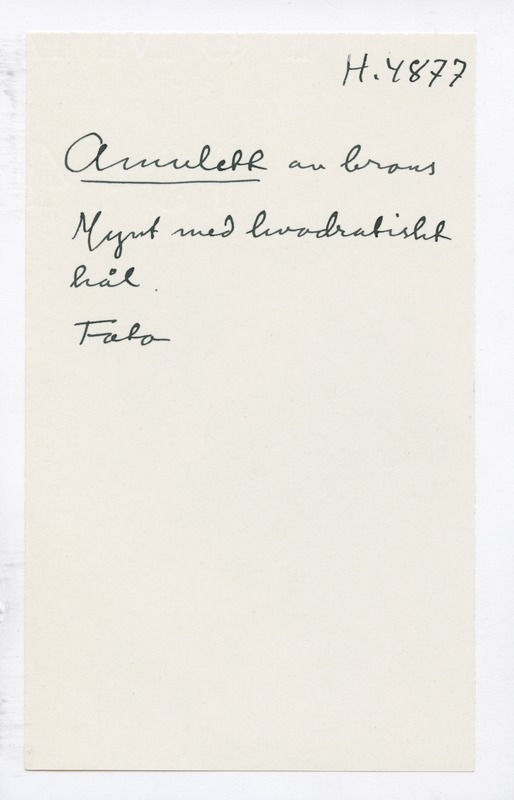 H.4877
Amulett av brons
Mynt med kvadratiskt
hål.
Foto